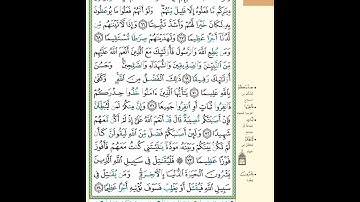 دِيَـٰرِكُم مَّا فَعَلُوهُ إِلَّا قَلِيلٌ مِّنْهُمْ وَلَوْ أَنَّهُمْ فَعَلُوا۟ مَا يُوعَظُونَ
بِهِۦ لَكَانَ خَيْرًا لَّهُمْ وَأَشَدَّ تَثْبِيتًا ٦٦ وَإِذًا لَّـَٔاتَيْنَـٰهُم مِّن
لَّدُنَّآ أَجْرًا عَظِيمًا ٦٧ وَلَهَدَيْنَـٰهُمْ صِرَٰطًا مُّسْتَقِيمًا ٦٨
وَمَن يُطِعِ ٱللَّهَ وَٱلرَّسُولَ فَأُو۟لَـٰٓئِكَ مَعَ ٱلَّذِينَ أَنْعَمَ ٱللَّهُ عَلَيْهِم
مِّنَ ٱلنَّبِيِّـۧنَ وَٱلصِّدِّيقِينَ وَٱلشُّهَدَآءِ وَٱلصَّـٰلِحِينَ وَحَسُنَ
أُو۟لَـٰٓئِكَ رَفِيقًا ٦٩ ذَٰلِكَ ٱلْفَضْلُ مِنَ ٱللَّهِ وَكَفَىٰ
بِٱللَّهِ عَلِيمًا ٧٠ يَـٰٓأَيُّهَا ٱلَّذِينَ ءَامَنُوا۟ خُذُوا۟ حِذْرَكُمْ
فَٱنفِرُوا۟ ثُبَاتٍ أَوِ ٱنفِرُوا۟ جَمِيعًا ٧١ وَإِنَّ مِنكُمْ لَمَن لَّيُبَطِّئَنَّ
فَإِنْ أَصَـٰبَتْكُم مُّصِيبَةٌ قَالَ قَدْ أَنْعَمَ ٱللَّهُ عَلَىَّ إِذْ لَمْ أَكُن مَّعَهُمْ
شَهِيدًا ٧٢ وَلَئِنْ أَصَـٰبَكُمْ فَضْلٌ مِّنَ ٱللَّهِ لَيَقُولَنَّ كَأَن
لَّمْ تَكُنۢ بَيْنَكُمْ وَبَيْنَهُۥ مَوَدَّةٌ يَـٰلَيْتَنِى كُنتُ مَعَهُمْ فَأَفُوزَ
فَوْزًا عَظِيمًا ٧٣ فَلْيُقَـٰتِلْ فِى سَبِيلِ ٱللَّهِ ٱلَّذِينَ
يَشْرُونَ ٱلْحَيَوٰةَ ٱلدُّنْيَا بِٱلْـَٔاخِرَةِ وَمَن يُقَـٰتِلْ فِى
سَبِيلِ ٱللَّهِ فَيُقْتَلْ أَوْ يَغْلِبْ فَسَوْفَ نُؤْتِيهِ أَجْرًا عَظِيمًا ٧٤